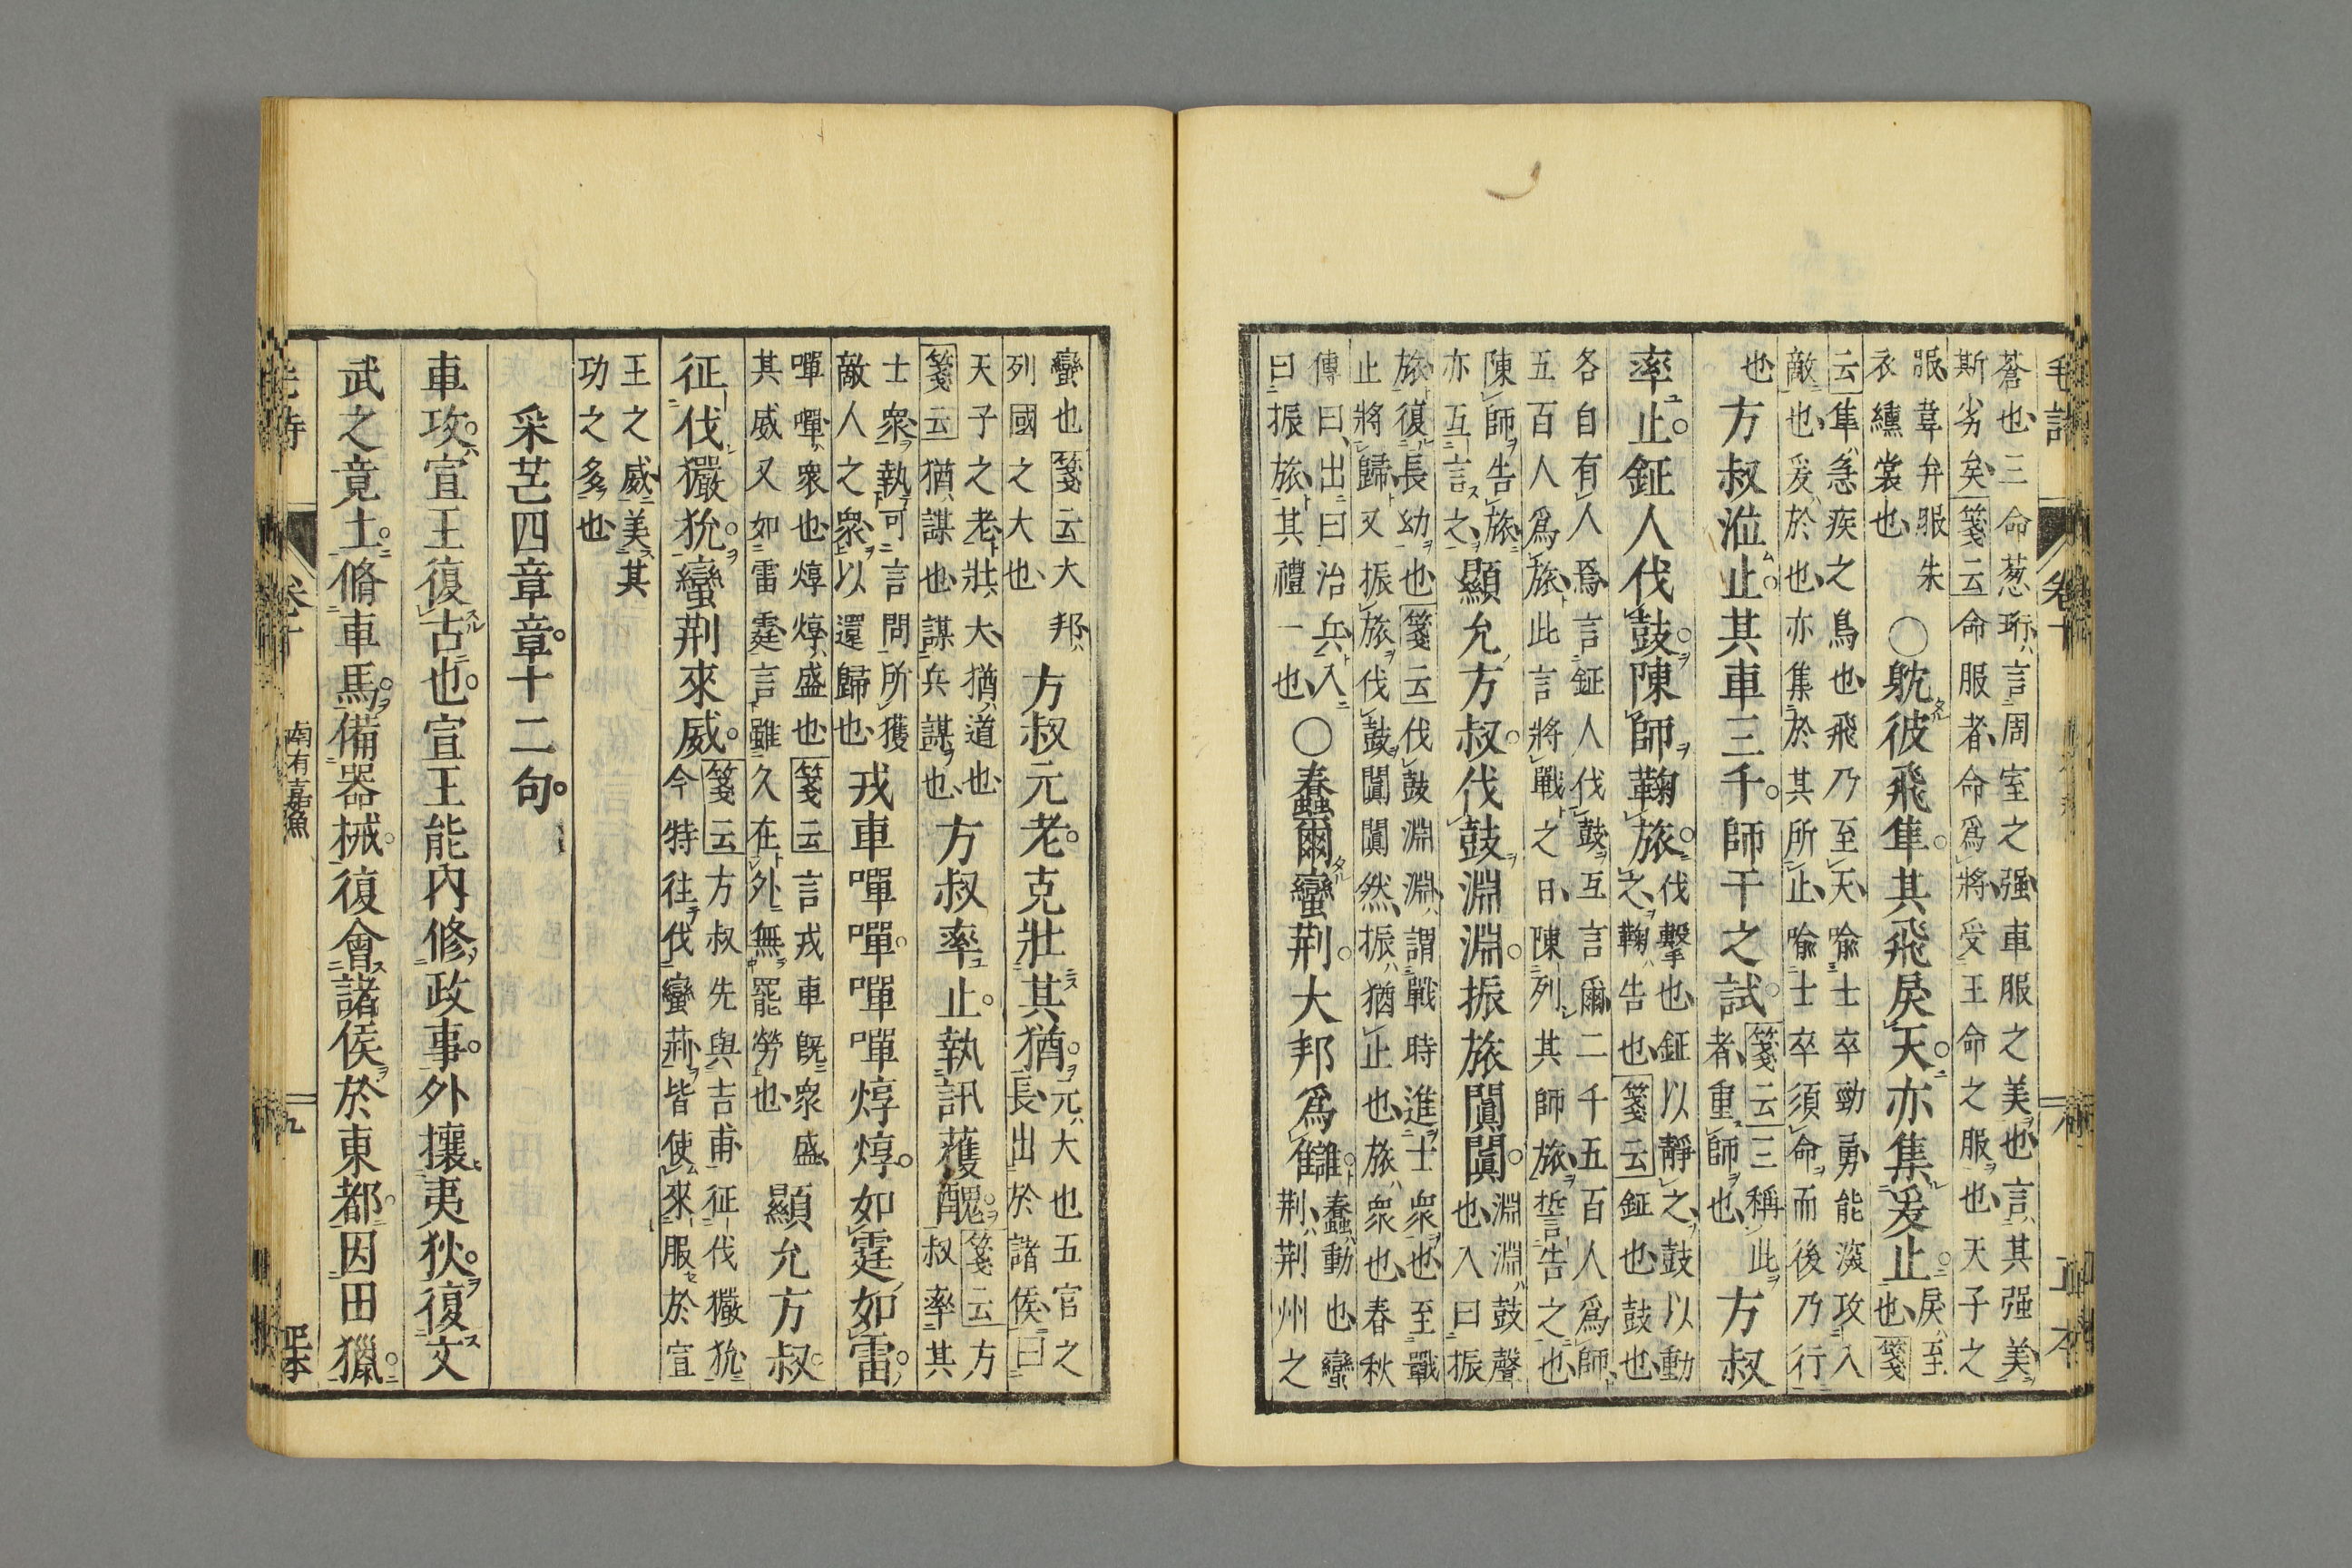 毛詩 卷十
蒼也三命葱珩言周室之强車服之美也言其强美
斯劣矣箋云命服者命爲將受王命之服也天子之
服韋弁服朱衣纁裳也○鴥彼飛隼其飛戾天亦集爰止戾至也箋
云隼急疾之鳥也飛乃至天喻士卒勁勇能深攻入
敵也爰於也亦集於其所止喻士卒須命而後乃行
也方叔涖止其車三千師干之試箋云三稱此者重師也方叔
率止鉦人伐鼓陳師鞠旅伐擊也鉦以靜之鼓以動之鞠告也箋云鉦也鼓也
各自有人焉言鉦人伐鼓互言爾二千五百人爲師
五百人爲旅此言將戰之日陳列其師旅誓告之也
陳師告旅亦互言之顯允方叔伐鼓淵淵振旅闐闐淵淵鼓聲也入曰振
旅復長幼也箋云伐鼓淵淵謂戰時進士衆也至戰
止將歸又振旅伐鼓闐闐然振猶止也旅衆也春秋
傳曰出曰治兵入曰振旅其禮一也○蠢爾蠻荊大邦爲讎蠢動也蠻荊荊州之
蠻也箋云大邦列國之大也方叔元老克壯其猶元大也五官之長出於諸侯曰
天子之老壯大猶道也箋云猶謀也謀兵謀也方叔率止執訊獲醜箋云方叔率其
士衆執可言問所獲敵人之衆以還歸也戎車嘽嘽嘽嘽焞焞如霆如雷
嘽嘽衆也焞焞盛也箋云言戎車既衆盛其威又如雷霆言雖久在外無罷勞也顯允方叔
征伐玁狁蠻荊來威箋云方叔先與吉甫征伐玁狁今特往伐蠻荊皆使來服於宣
王之威美其功之多也
采芑四章章十二句
車攻宣王復古也宣王能內修政事外攘夷狄復文
武之竟土脩車馬備器械復會諸侯於東都因田獵
毛詩 卷十 南有嘉魚 九